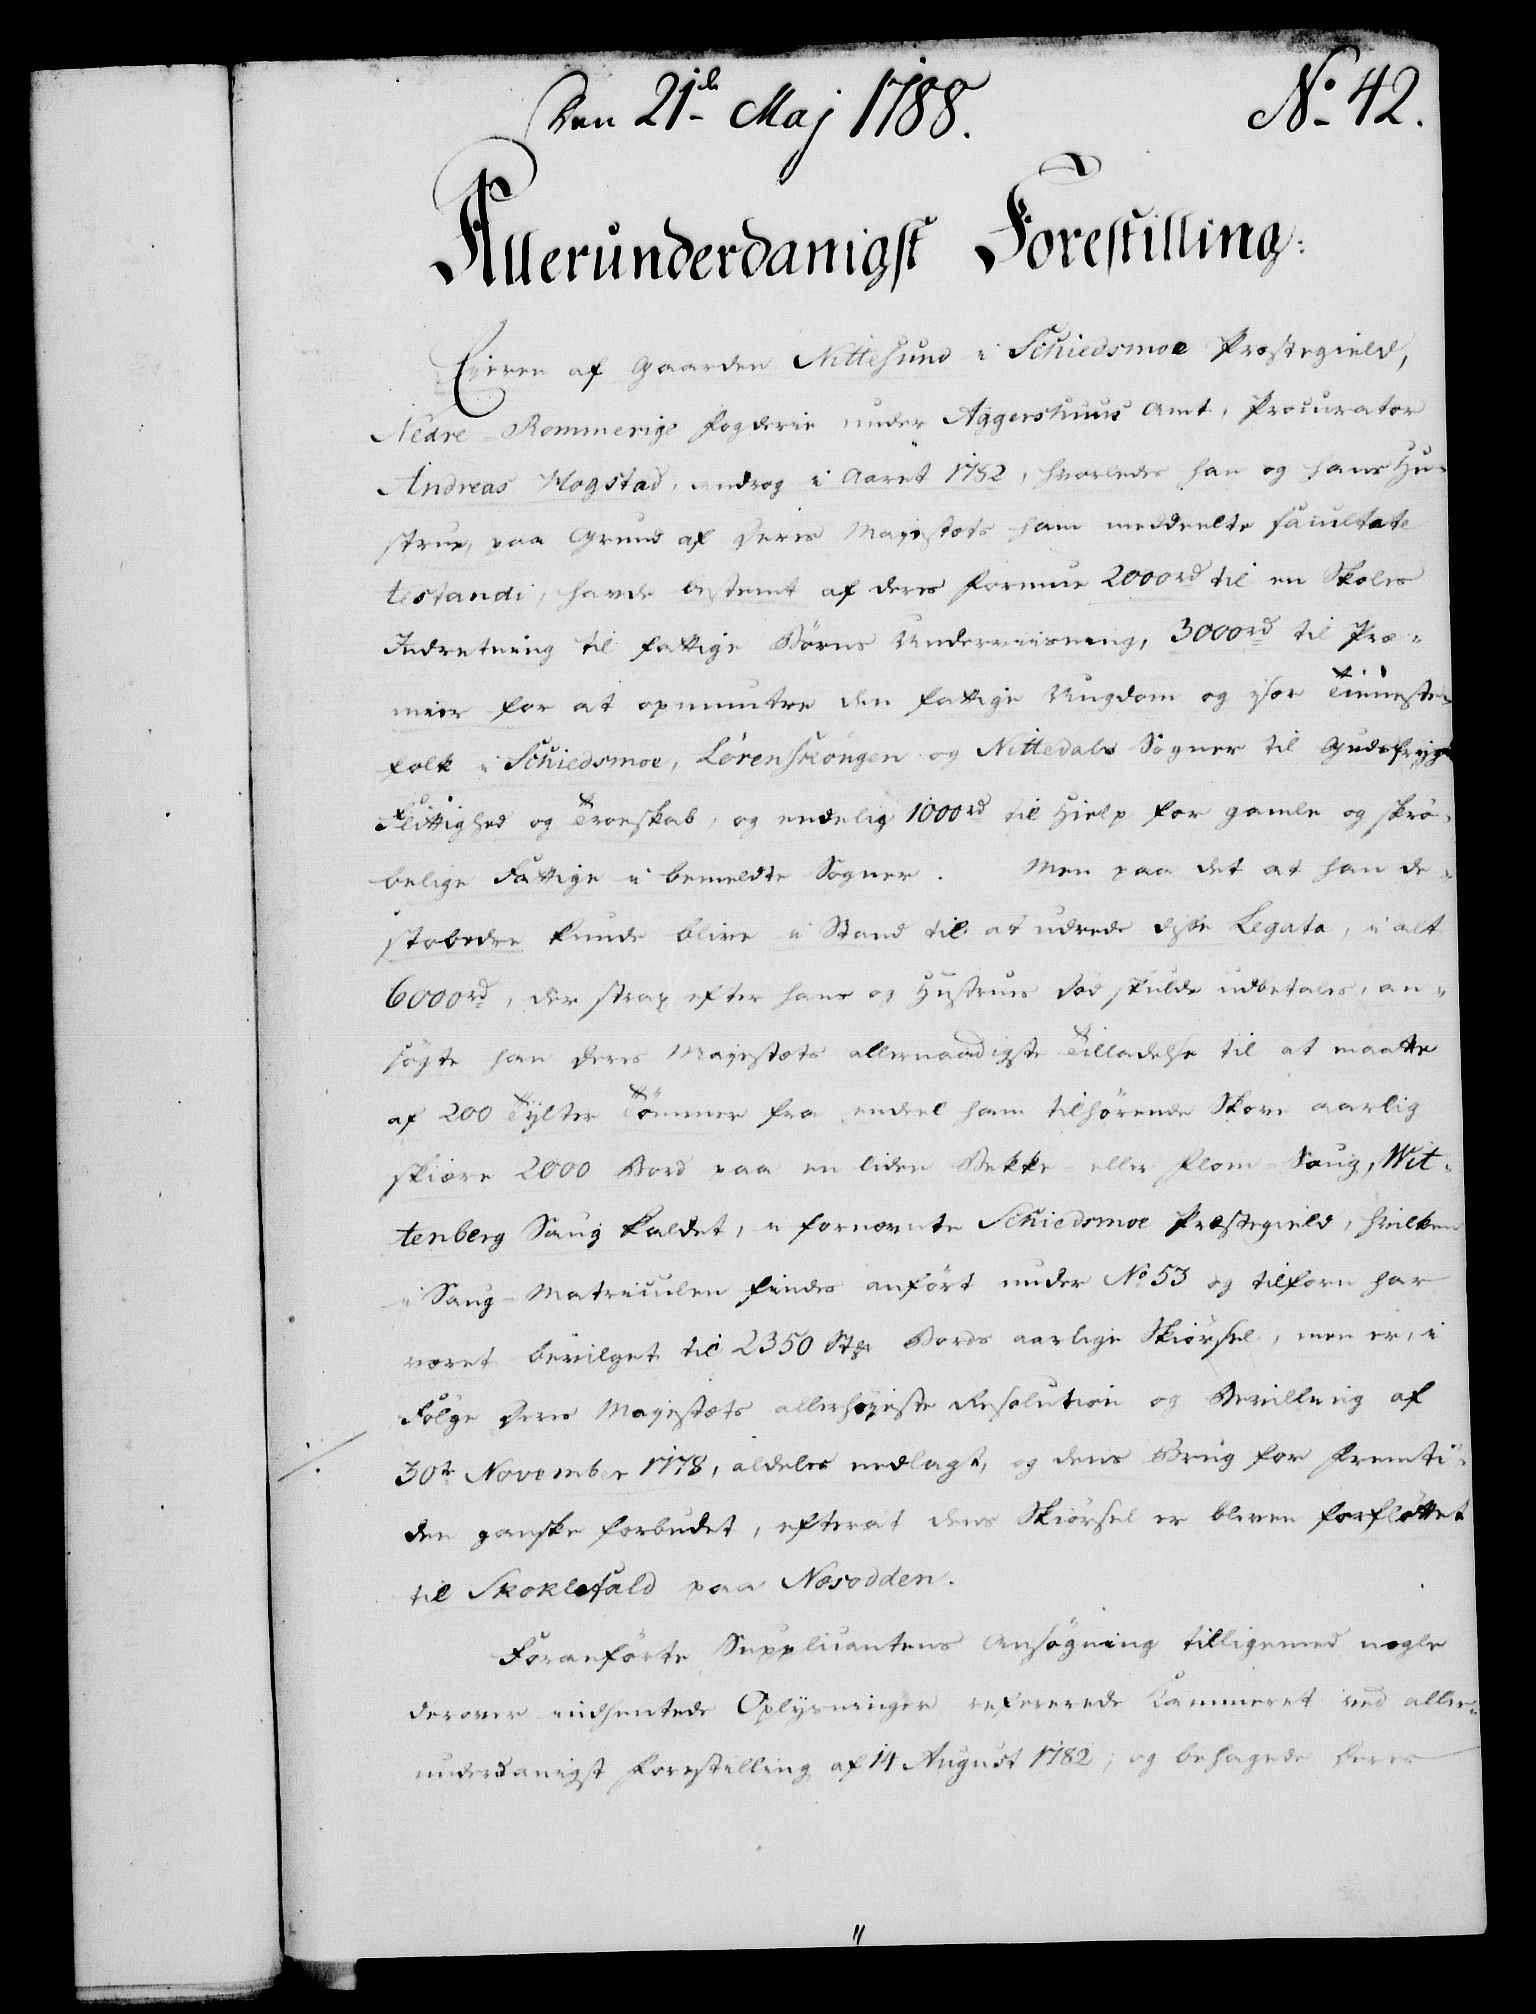 Den 21de Maj 1788.
No 42.
Allerunderdanigst Forestilling:
Ejeren af Gaarden Nittesund i Schiedsmoe Præstegield,
Nedre-Rommerige Fogderie under Aggershuus Amt, Procurator
Andreas Mogstad, androg i Aaret 1782, hvorledes han og hans Hu-
strue, paa Grund af Deres Majestæts ham meddeelte facultate
testandi, havde bestemt af deres Formue 2000rd til en Skoles
Indretning til fattige Börns Underviisning, 3000rd til Præ-
mier for at opmuntre den fattige Ungdom og især Tieneste-
folk i Schiedsmoe, Lörenskougen og Nittedals Sogner til Gudsfrygt
Flittighed og Troeskab, og endelig 1000rd til Hielp for gamle og skrö-
belige Fattige i bemeldte Sogner. Men paa det at han de-
stobedre kunde blive i Stand til at udrede disse Legata, i alt
6000rd, der strax efter hans og Hustrues Död skulde udbetales, an-
sögte han Deres Majestæts allernaadigste Tilladelse til at maatte
af 200 Tylter Tömmer fra endeel ham tilhörende Skove aarlig
skiære 2000 Bord paa en liden Bekke- eller Flom-Saug, Wit-
tenberg Saug kaldet, i fornævnte Schiedsmoe Præstegield, hvilken
i Saug-Matriculen findes anfört under No 53 og tilforn har
været bevilget til 2350 Stkr Bords aarlige Skiörsel, men er, i
Fölge Deres Majestæts allerhöyeste Resolution og Bevilling af
30te November 1778, aldeles nedlagt, og dens Brug for Fremti-
den ganske forbudet, efterat dens Skiörsel er bleven forflöttet
til Skoklefald paa Næsodden.
Foranförte Supplicantens Ansögning tilligemed nogle
derover indhentede Oplysninger refererede Kammeret ved aller-
underdanigst Forestilling af 14 August 1782; og behagede Deres